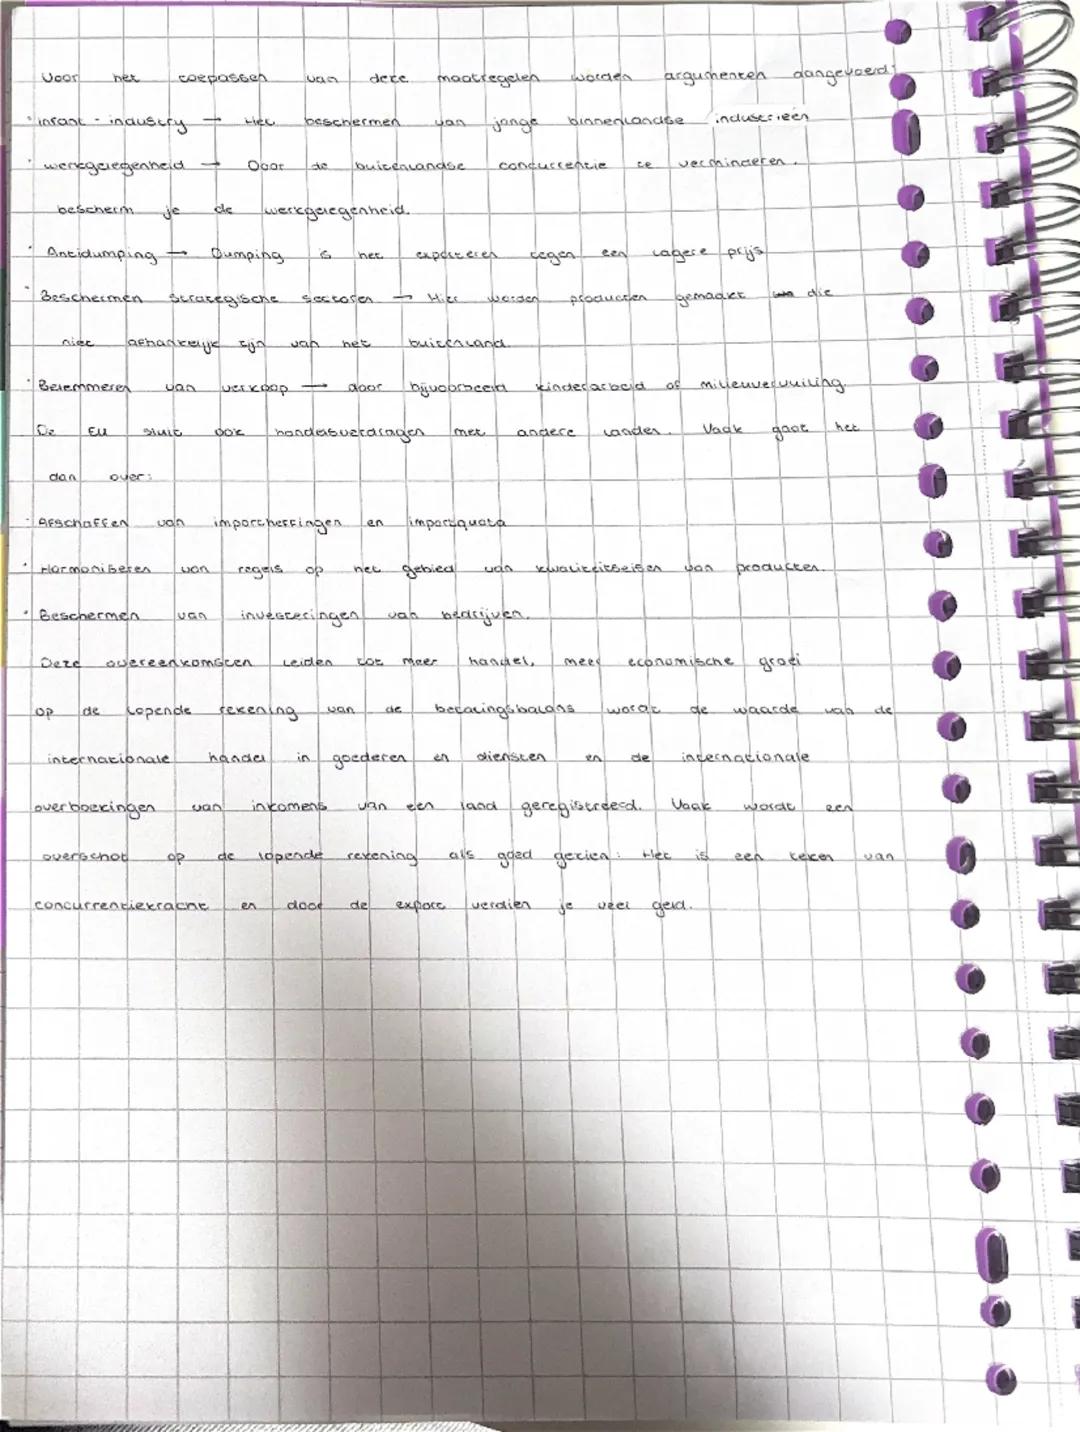 Voor het toepassen van deze maatregelen worden argumenten aangevoerd:
· infant - industry → Het beschermen van jonge binnenlandse industrieën
· werkgelegenheid → Door de buitenlandse concurrentie te verminderen.
bescherm je de werkgelegenheid.
· Antidumping → Dumping is het exporteren tegen een lagere prijs
· Beschermen strategische sectoren → Hier worden producten gemaakt die
niet afhankelijk zijn van het buitenland.
· Belemmeren van verkoop → door bijvoorbeeld kinderarbeid of milieuvervuiling.
De EU sluit ook handelsverdragen met andere landen. Vaak gaat het
dan over:
· Afschaffen van importheffingen en importquota
· Harmoniseren van regels op het gebied van kwaliteitseisen van producten.
· Beschermen van investeringen van bedrijven.
Deze overeenkomsten leiden tot meer handel, meer economische groei
op de lopende rekening van de betalingsbalans wordt de waarde van de
internationale handel in goederen en diensten en de internationale
overboekingen van inkomens van een land geregistreerd. Vaak wordt een
overschot op de lopende rekening als goed gezien: Het is een teken van
concurrentiekracht en door de export verdien je veel geld.